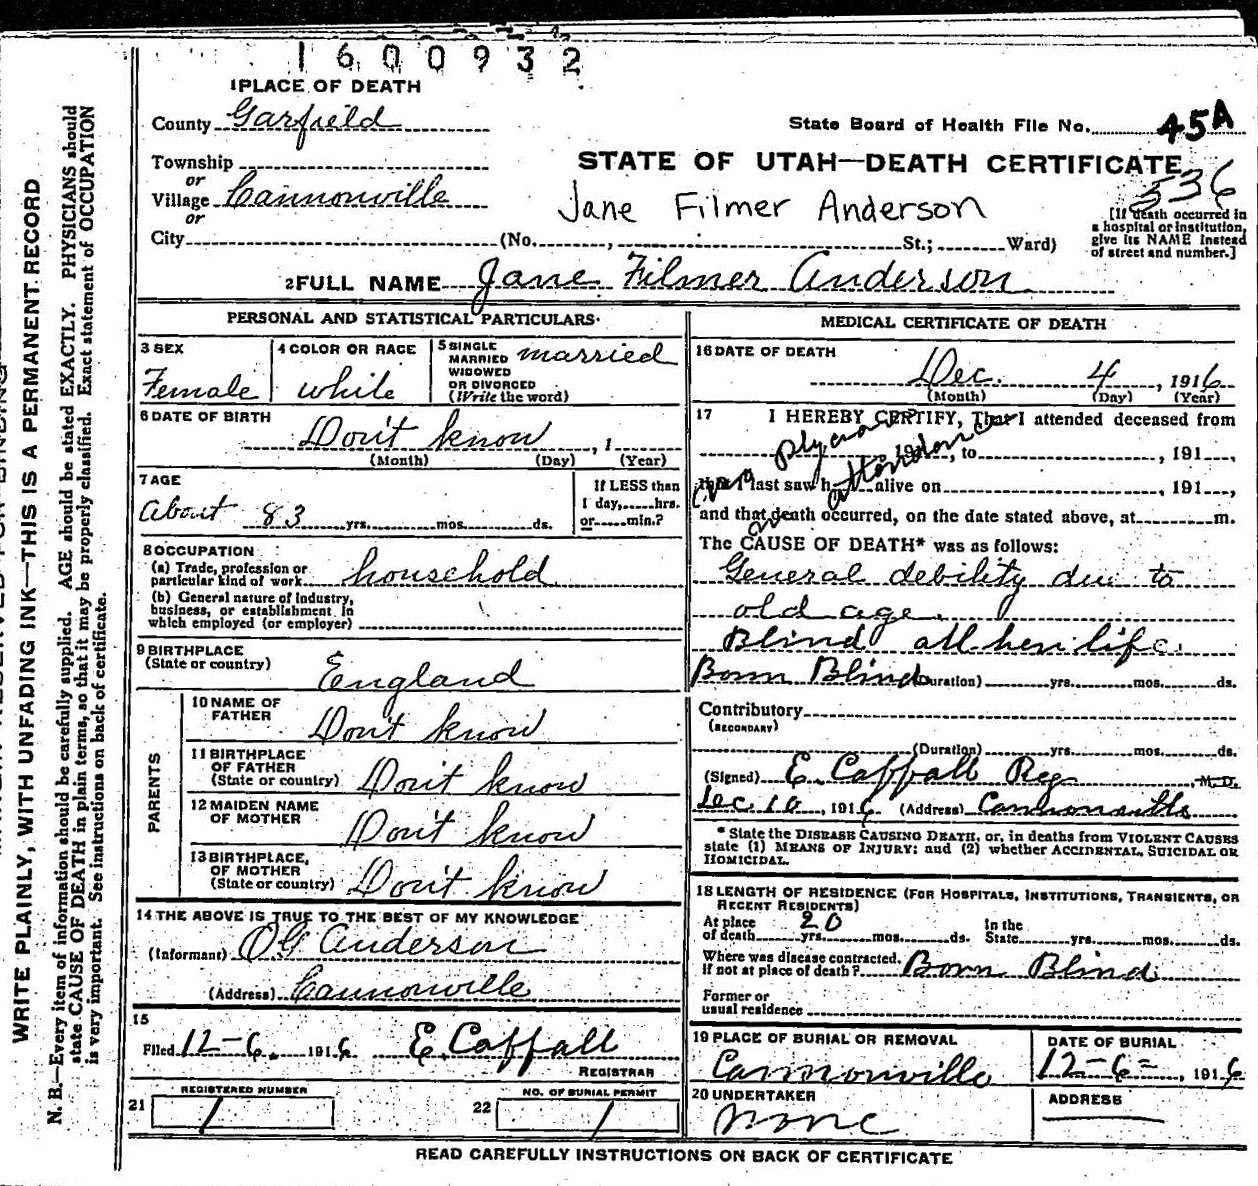 1600932
1 PLACE OF DEATH
County Garfield
State Board of Health File No. 45A
Township
or
Village Cannonville
or
City (No. , St.; Ward)
STATE OF UTAH—DEATH CERTIFICATE
536
Jane Filmer Anderson
[If death occurred in
a hospital or institution,
give its NAME instead
of street and number.]
2 FULL NAME Jane Filmer Anderson
PERSONAL AND STATISTICAL PARTICULARS
3 SEX
Female
4 COLOR OR RACE
white
5 SINGLE
MARRIED
WIDOWED
OR DIVORCED
(Write the word)
married
6 DATE OF BIRTH
Don't know , 1
(Month) (Day) (Year)
7 AGE
about 83 yrs. mos. ds.
If LESS than
1 day, hrs.
or min.?
8 OCCUPATION
(a) Trade, profession or
particular kind of work household
(b) General nature of industry,
business, or establishment in
which employed (or employer)
9 BIRTHPLACE
(State or country) England
PARENTS
10 NAME OF
FATHER Don't know
11 BIRTHPLACE
OF FATHER
(State or country) Don't know
12 MAIDEN NAME
OF MOTHER Don't know
13 BIRTHPLACE,
OF MOTHER
(State or country) Don't know
14 THE ABOVE IS TRUE TO THE BEST OF MY KNOWLEDGE
(Informant) O G Anderson
(Address) Cannonville
15
Filed 12-6. 1916 E. Caffall
REGISTRAR
REGISTERED NUMBER
21 1
NO. OF BURIAL PERMIT
22 1
MEDICAL CERTIFICATE OF DEATH
16 DATE OF DEATH
Dec. 4, 1916
(Month) (Day) (Year)
17 I HEREBY CERTIFY, That I attended deceased from
, 191 , to , 191 ,
that I last saw h alive on , 191 ,
and that death occurred, on the date stated above, at m.
no physician
in attendance
The CAUSE OF DEATH* was as follows:
General debility due to
old age.
Blind all her life.
Born Blind (Duration) yrs. mos. ds.
Contributory
(SECONDARY)
(Duration) yrs. mos. ds.
(Signed) E. Caffall Reg M. D.
Dec 10, 1916 (Address) Cannonville
* State the DISEASE CAUSING DEATH, or, in deaths from VIOLENT CAUSES
state (1) MEANS OF INJURY; and (2) whether ACCIDENTAL, SUICIDAL OR
HOMICIDAL.
18 LENGTH OF RESIDENCE (FOR HOSPITALS, INSTITUTIONS, TRANSIENTS, OR
RECENT RESIDENTS)
At place
of death 20 yrs. mos. ds.
In the
State yrs. mos. ds.
Where was disease contracted,
if not at place of death? Born Blind
Former or
usual residence
19 PLACE OF BURIAL OR REMOVAL
Cannonville
DATE OF BURIAL
12-6-, 1916
20 UNDERTAKER
none
ADDRESS
READ CAREFULLY INSTRUCTIONS ON BACK OF CERTIFICATE
WRITE PLAINLY, WITH UNFADING INK—THIS IS A PERMANENT RECORD
N. B.—Every item of information should be carefully supplied. AGE should be stated EXACTLY. PHYSICIANS should
state CAUSE OF DEATH in plain terms, so that it may be properly classified. Exact statement of OCCUPATION
is very important. See instructions on back of certificate.